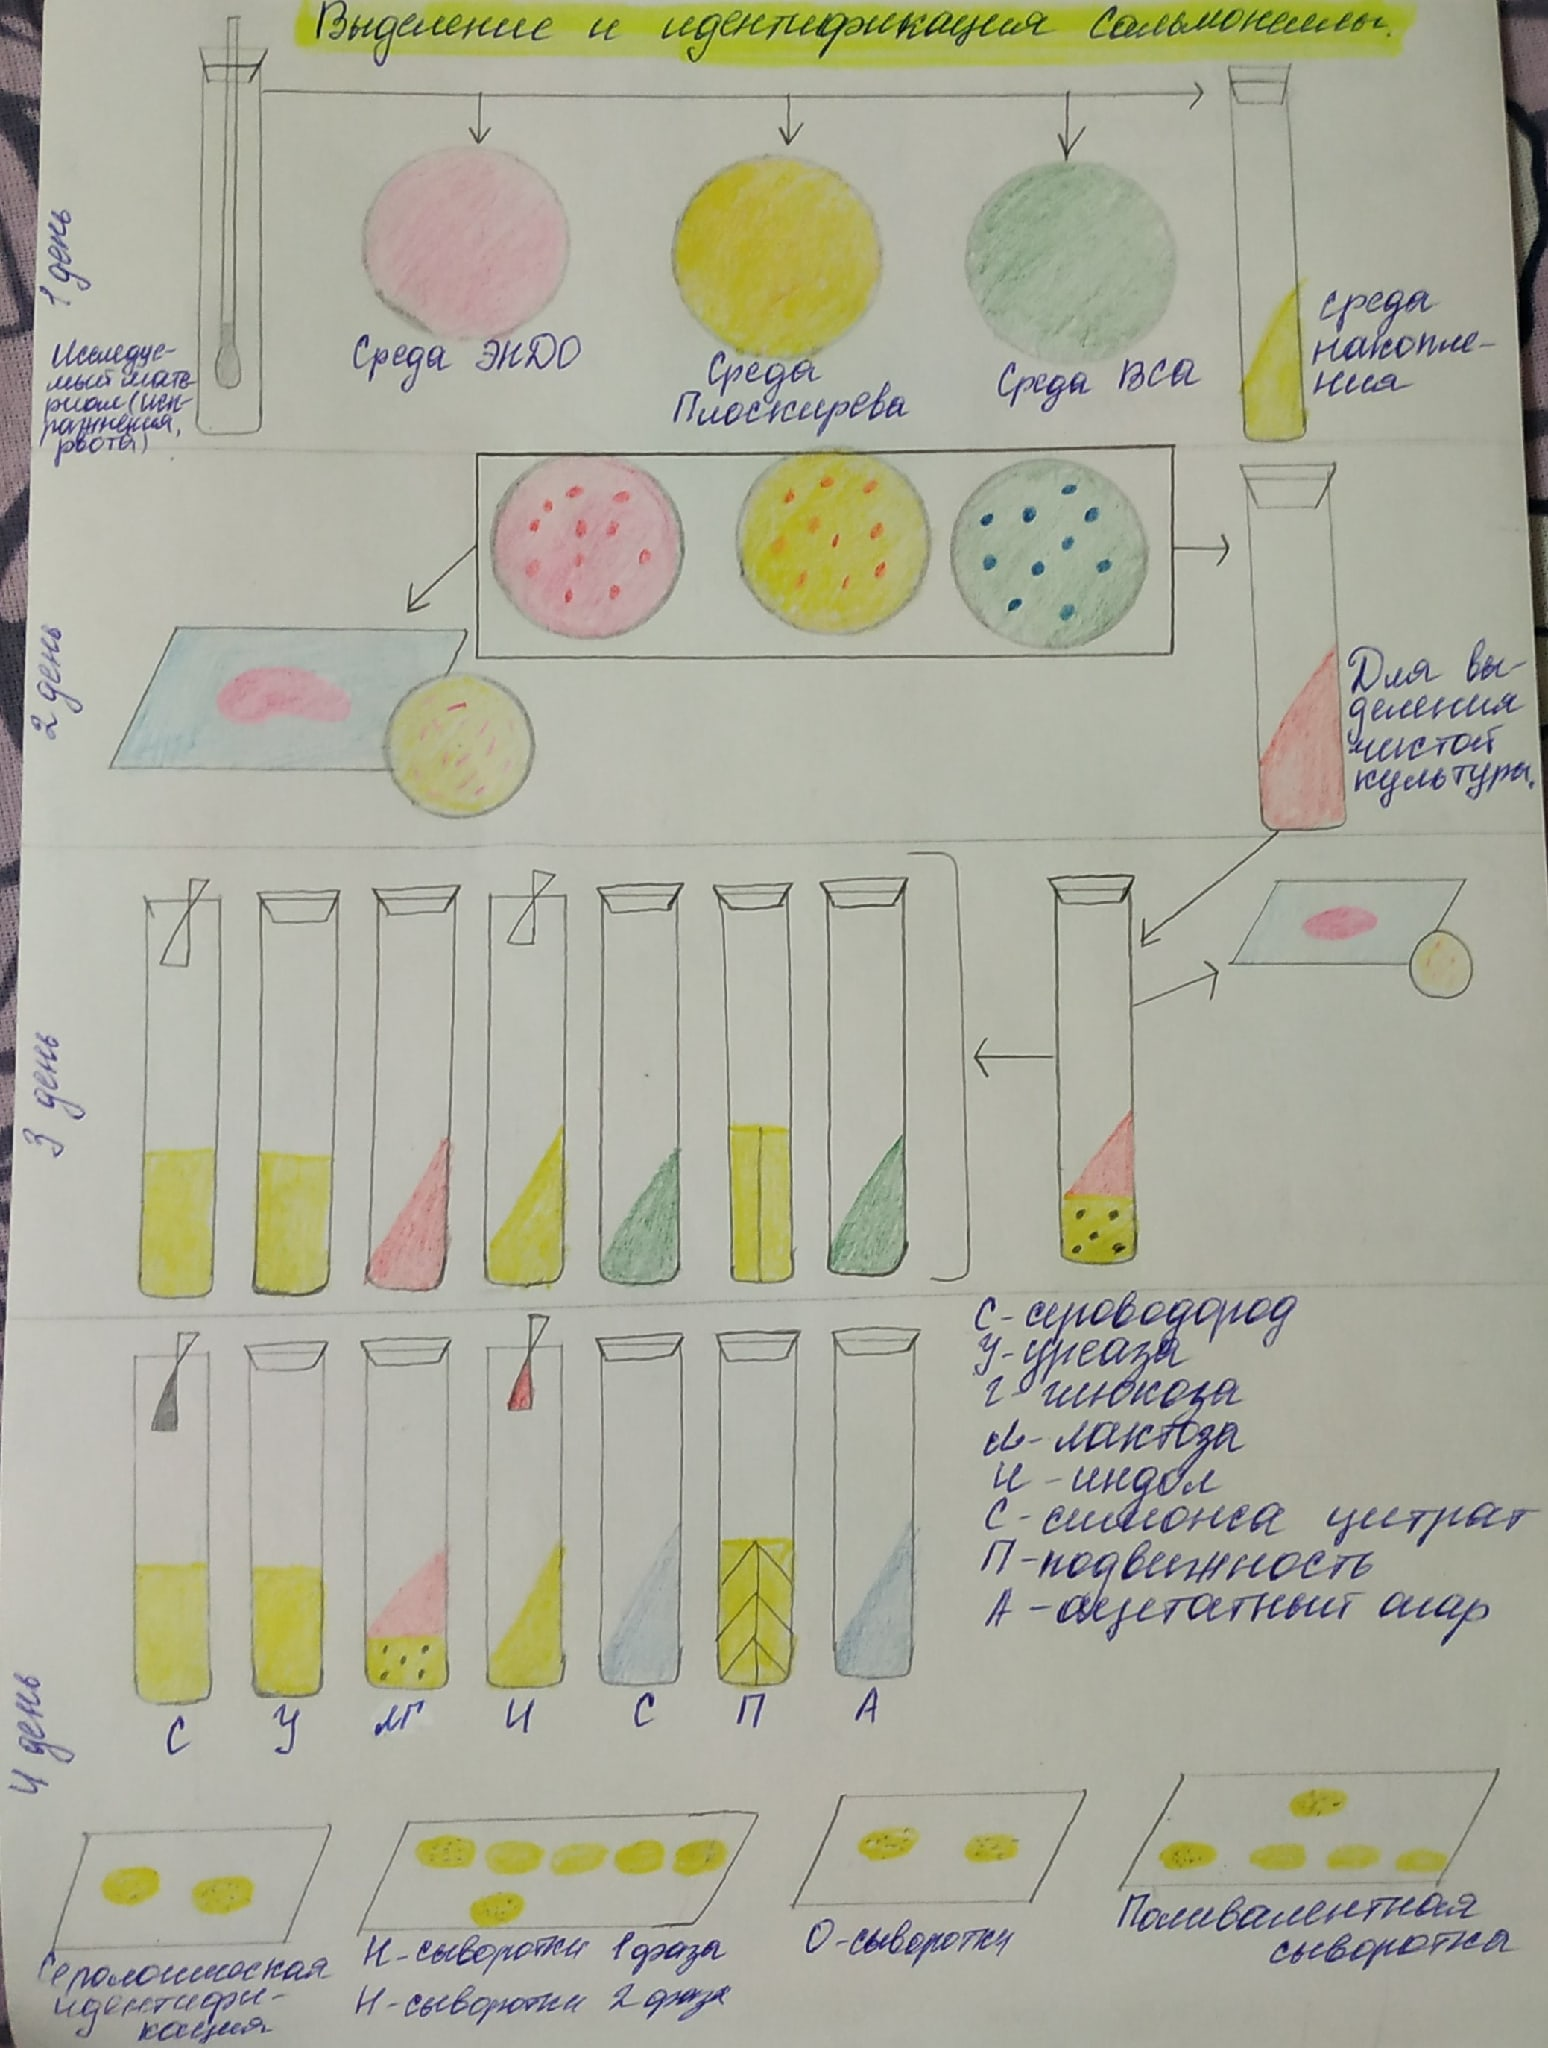 Выделение и идентификация Сальмонеллы.
1 день
Исследуе-
мый мате-
риал (исп-
ражнения,
рвота)
Среда ЭНДО
Среда
Плоскирева
Среда ВСА
среда
накопле-
ния
2 день
Для вы-
деления
чистой
культуры.
3 день
С - сероводород
У - уреаза
г - глюкоза
Л - лактоза
И - индол
С - симонса цитрат
П - подвижность
А - ацетатный агар
4 день
С
У
ЛГ
И
С
П
А
Серологическая
идентифи-
кация
Н-сыворотки 1 фаза
Н-сыворотки 2 фаза
О-сыворотки
Поливалентная
сыворотка